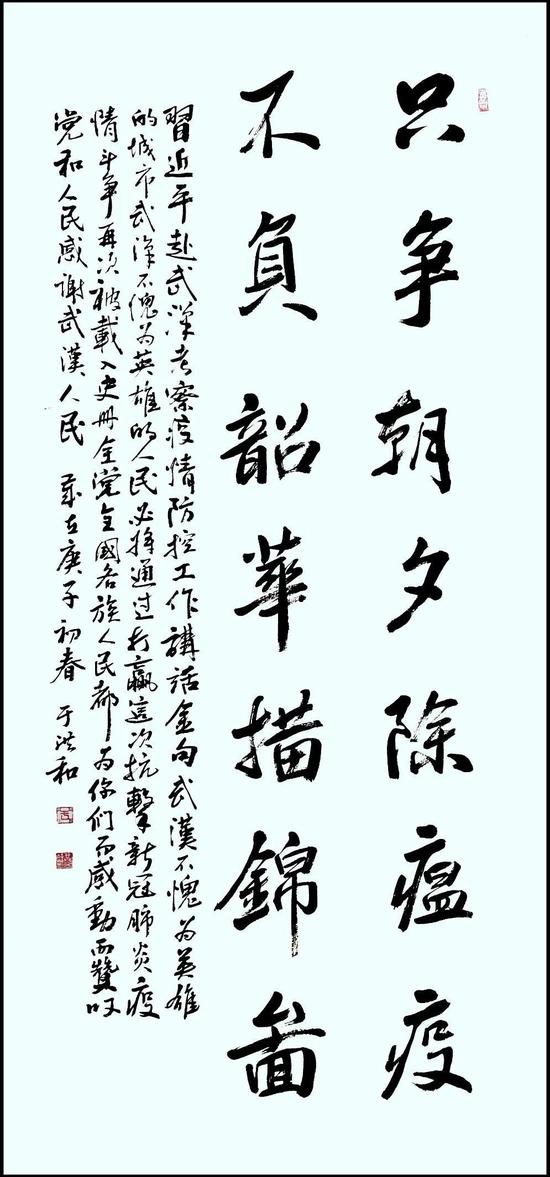 只争朝夕除瘟疫
不負韶華描錦啚
習近平赴武漢考察疫情防控工作講話金句武漢不愧为英雄
的城市武漢不愧为英雄的人民必將通过打贏這次抗擊新冠肺炎疫
情斗争再次被載入史册全党全國各族人民都为你們而感動而贊叹
党和人民感謝武漢人民 歲在庚子初春 于洪和